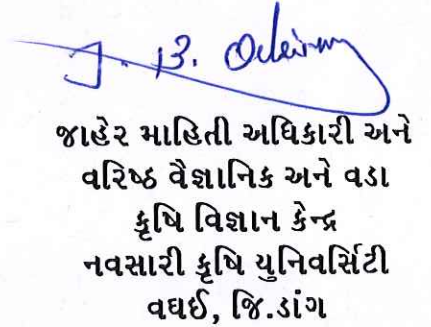 J. B.
જાહેર માહિતી અધિકારી અને
વરિષ્ઠ વૈજ્ઞાનિક અને વડા
કૃષિ વિજ્ઞાન કેન્દ્ર
નવસારી કૃષિ યુનિવર્સિટી
વઘઈ, જિ.ડાંગ